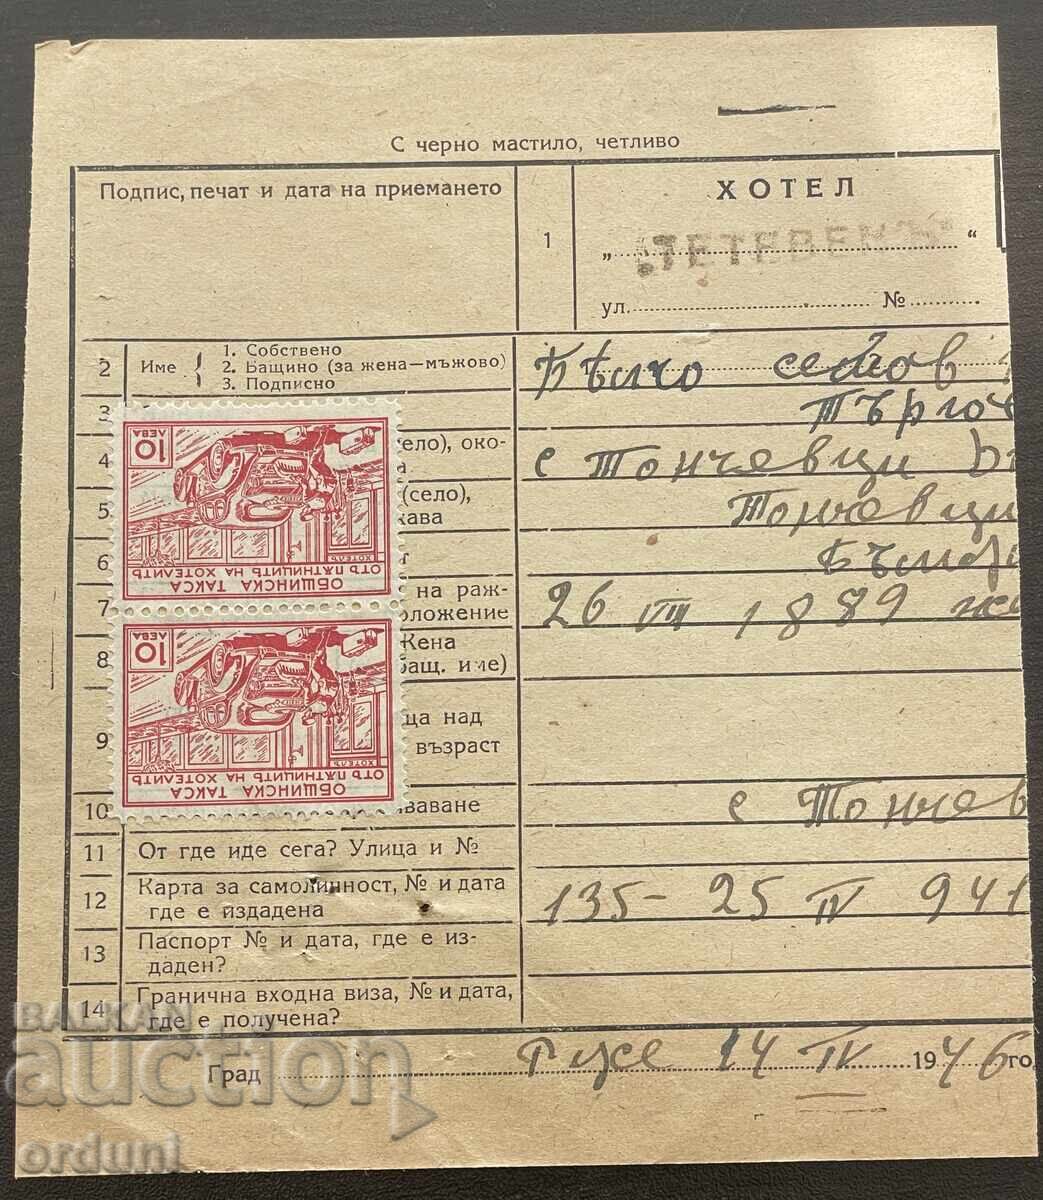 С черно мастило, четливо
Подпис, печат и дата на приемането
1
ХОТЕЛ
„ТЕТЕВЕНЪ“
ул. №
2 Име { 1. Собствено
2. Бащино (за жена—мъжово)
3. Подписно
Бѣлчо
3
Търгов
4 ело), око-
а
с Тончевци
5 (село),
жава
Тончевци
6 т
Бълга
7 на раж-
оложение
26 VIII 1889 же
8 Жена
бащ. име)
9 ца над
възраст
10 ваване
с Тончев
11 От где иде сега? Улица и №
12 Карта за самоличност, № и дата
где е издадена
135- 25 IV 941
13 Паспорт № и дата, где е из-
даден?
14 Гранична входна виза, № и дата,
где е получена?
Град Русе 14 IV 1946 го
ОБЩИНСКА ТАКСА
ОТЪ ПѪТНИЦИТѢ НА ХОТЕЛИТѢ
ХОТЕЛЪ
10
ЛЕВА
ОБЩИНСКА ТАКСА
ОТЪ ПѪТНИЦИТѢ НА ХОТЕЛИТѢ
ХОТЕЛЪ
10
ЛЕВА
BALKAN
auction
orduni